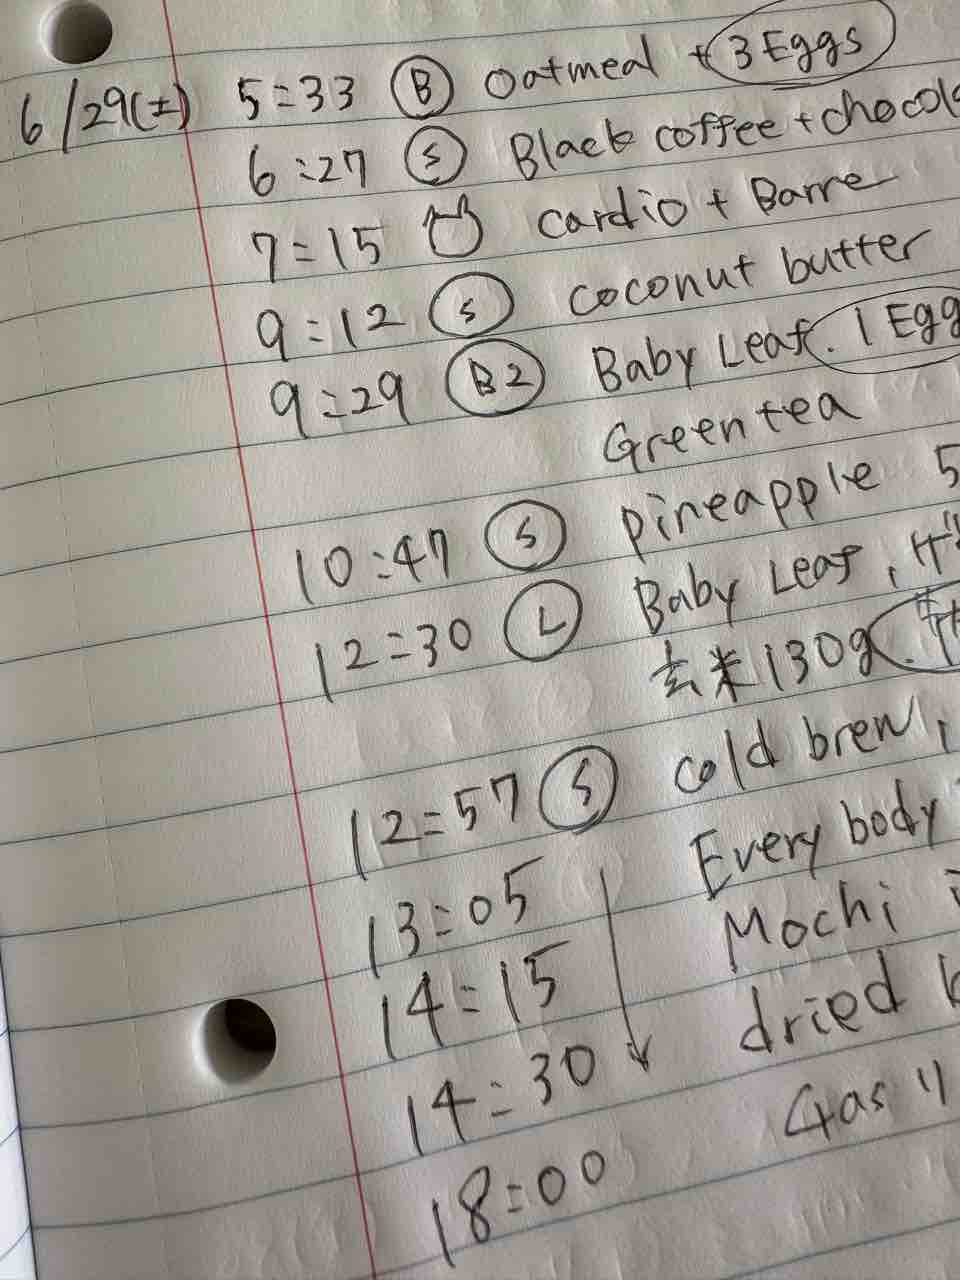 6/29(土) 5:33 Ⓑ Oatmeal + 3 Eggs
6:27 Ⓢ Black coffee + chocol
7:15 Cardio + Barre
9:12 Ⓢ coconut butter
9:29 B2 Baby Leaf. 1 Egg
Green tea
10:47 Ⓢ pineapple 5
12:30 Ⓛ Baby Leaf,
玄米130g.
12:57 Ⓢ cold brew,
13:05 Every body
14:15 Mochi
14:30 dried
18:00 Gas